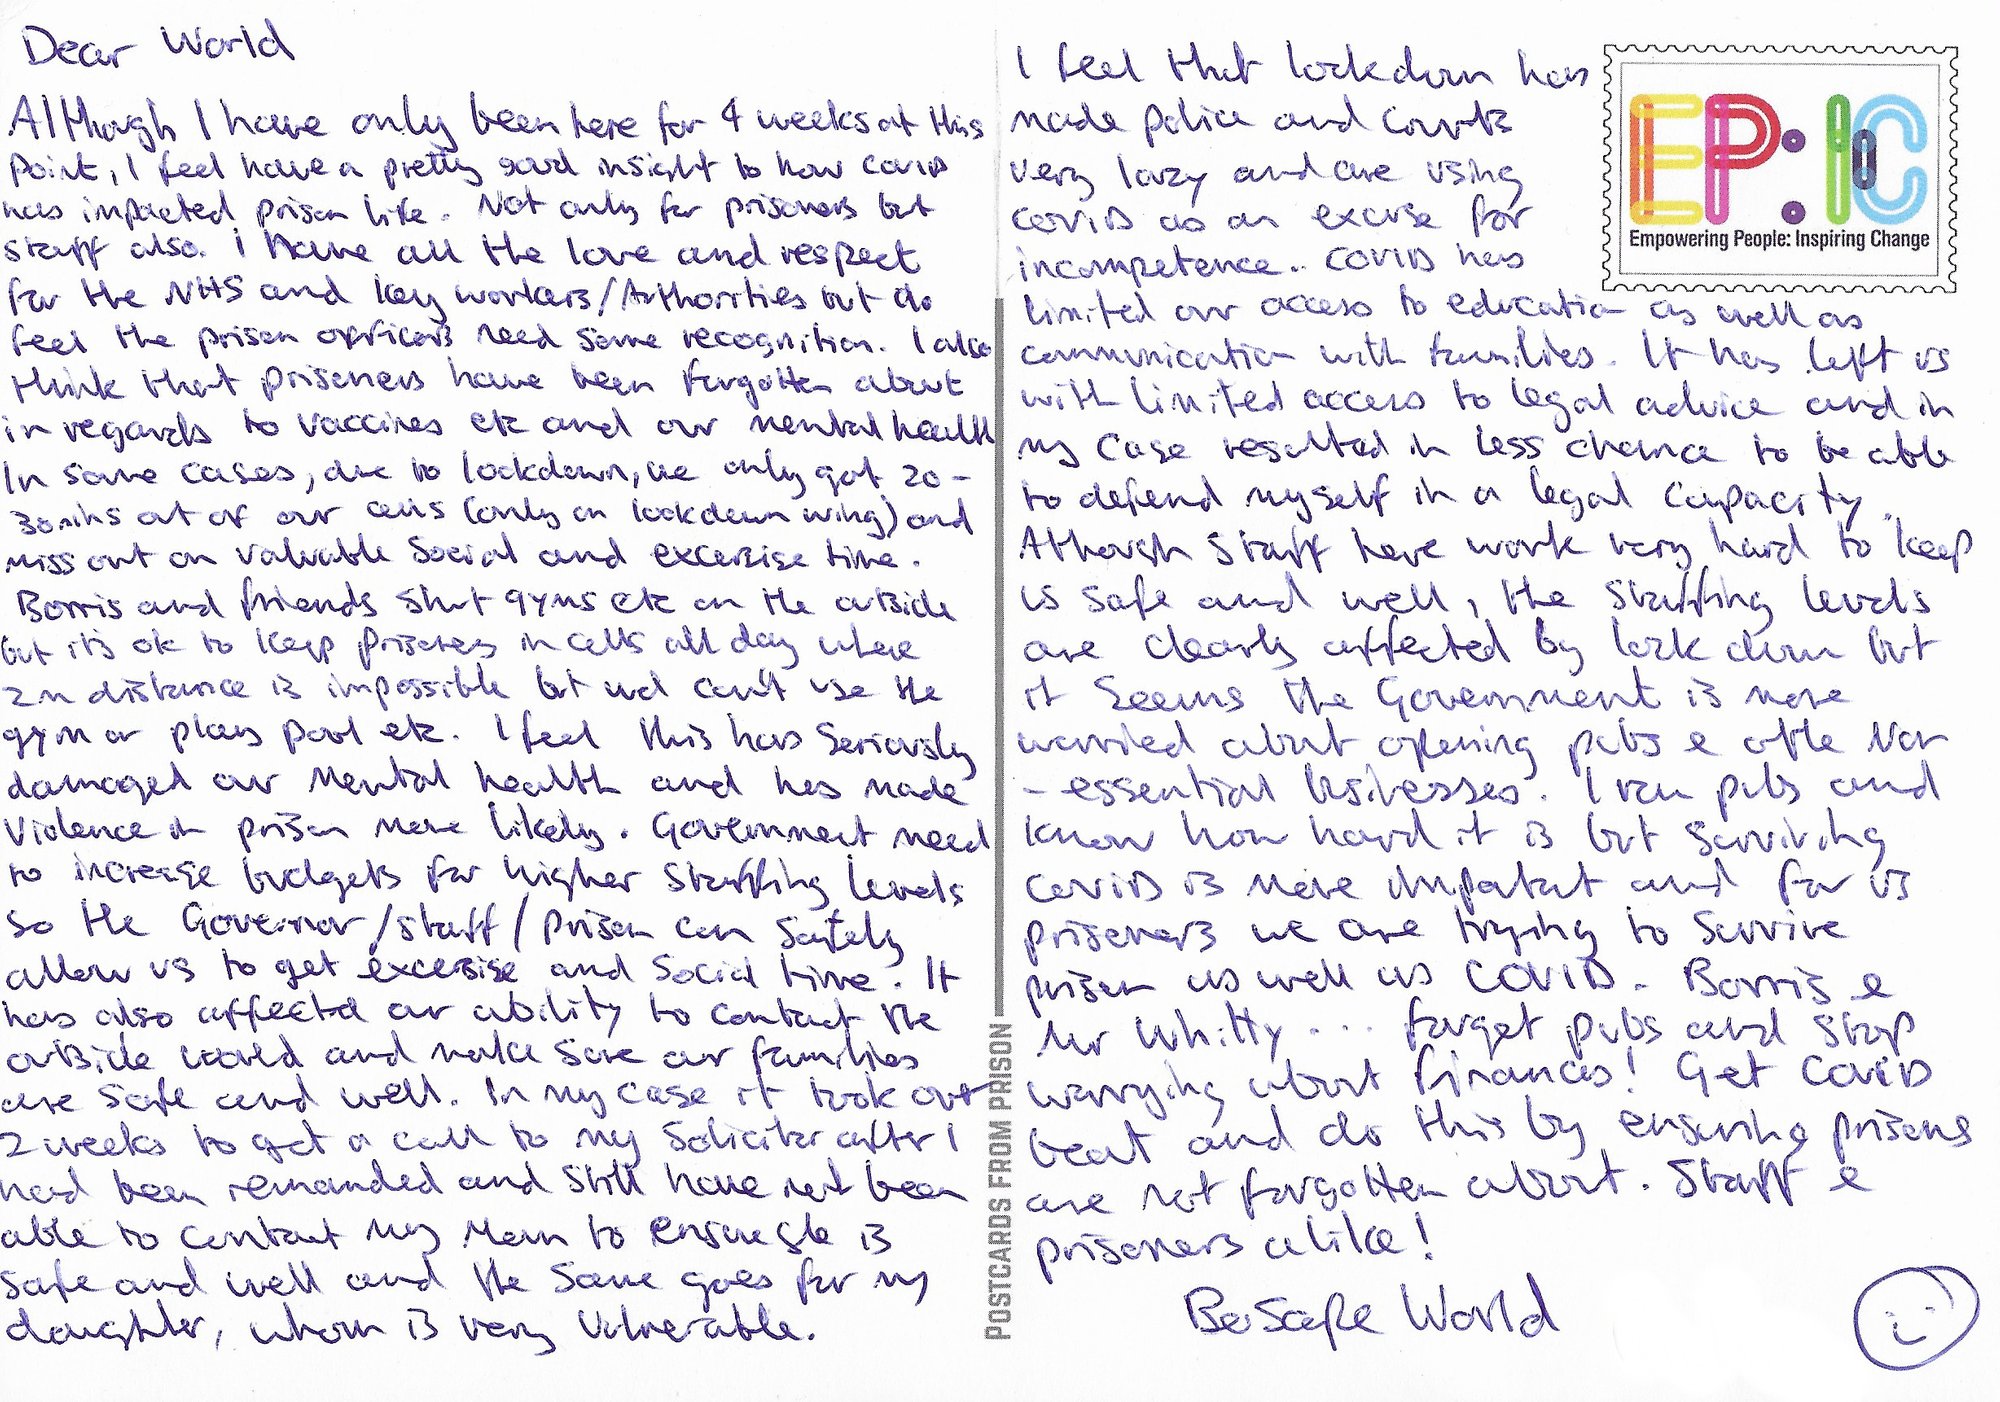 Dear World
Although I have only been here for 4 weeks at this
point, I feel have a pretty good insight to how COVID
has impacted prison life. Not only for prisoners but
staff also. I have all the love and respect
for the NHS and key workers/Authorities but do
feel the prison officers need some recognition. I also
think that prisoners have been forgotten about
in regards to vaccines etc and our mental health
In some cases, due to lockdown, we only got 20-
30mins out of our cells (only on lockdown wing) and
miss out on valuable social and excersise time.
Borris and friends shut gyms etc on the outside
but it's ok to keep prisoners in cells all day where
2m distance is impossible but we can't use the
gym or play pool etc. I feel this has seriously
damaged our mental health and has made
violence in prison more likely. Government need
to increase budgets for higher staffing levels
so the Governor/staff/prison can safely
allow us to get excersise and social time. It
has also affected our ability to contact the
outside world and make sure our families
are safe and well. In my case it took over
2 weeks to get a call to my solicitor after I
had been remanded and still have not been
able to contact my Mom to ensure she is
safe and well and the same goes for my
daughter, whom is very vulnerable.
POSTCARDS FROM PRISON
I feel that lockdown has
made police and courts
very lazy and are using
COVID as an excuse for
incompetence.. COVID has
limited our access to education as well as
communication with families. It has left us
with limited access to legal advice and in
my case resulted in less chance to be able
to defend myself in a legal capacity.
Although staff have work very hard to keep
us safe and well, the staffing levels
are clearly affected by lock down but
it seems the Government is more
worried about opening pubs & othe Non
-essential businesses. I ran pubs and
know how hard it is but surviving
COVID is more impotat and for us
prisoners we are trying to survive
prison as well as COVID. Borris &
Mr Whitty ... forget pubs and stop
worrying about finances! Get COVID
beat and do this by ensuring prisons
are not forgotten about. Staff &
prisoners alike!
Be Safe World
EP:IC
Empowering People: Inspiring Change